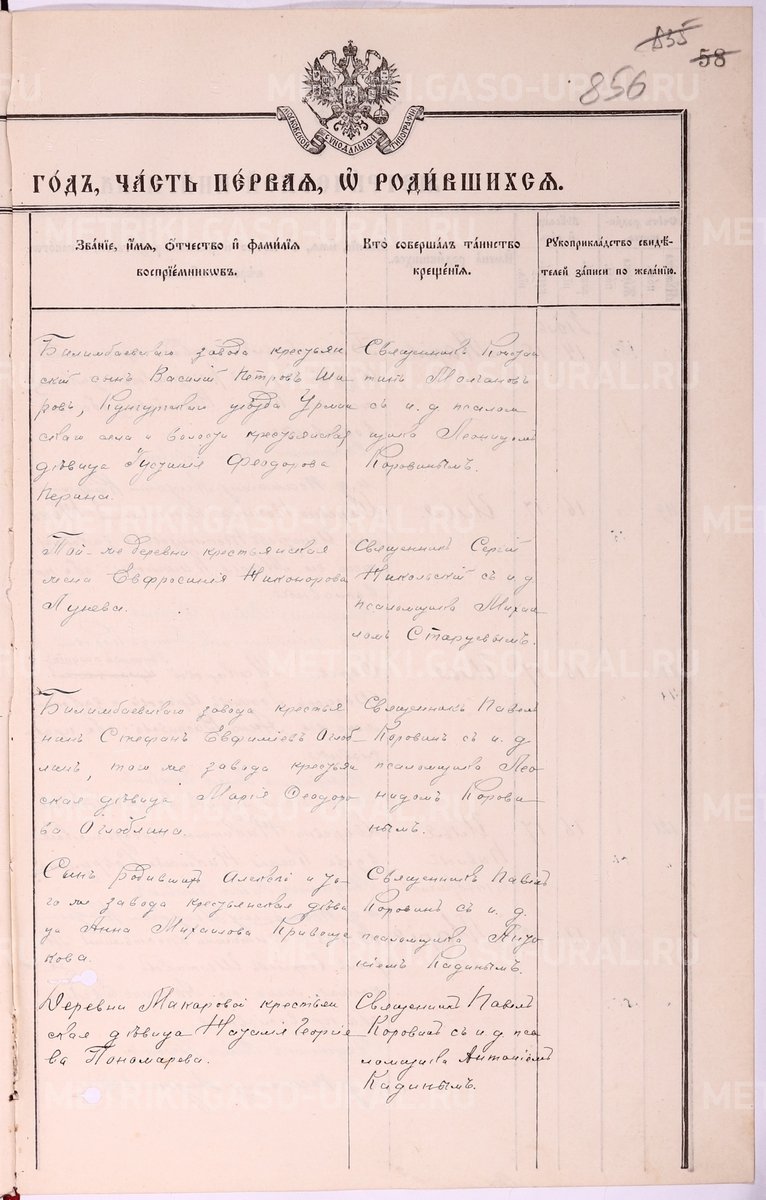 835
58
856
МОСКОВСКОЙ СѴНОДАЛЬНОЙ ТИПОГРАФІИ
ГО́ДЪ, ЧА́СТЬ ПЕ́РВАЯ, Ѽ РОДИ́ВШИХСЯ.
Зва́нїе, и҆́мя, ѻ҆́тчество и҆ фами́лїя
воспрїе́мникѡвъ.
Кто̀ соверша́лъ та́инство
креще́нїя.
Рꙋкоприкла́дство свидѣ́-
телей за́писи по жела́нїю.
Билимбаевскаго завода крестьян
скій сынъ Василій Петровъ Ша
ровъ, Кунгурскаго уѣзда Урмин
скаго села и волости крестьянская
дѣвица Іустинія Феодорова
Перина.
Священникъ Констан
тинъ Молчановъ
съ и. д. псалом
щика Леонидомъ
Коровинымъ.
Той-же деревни крестьянская
жена Евфросинія Никонорова
Лунева.
Священникъ Сергій
Никольскій съ и. д.
псаломщика Михаи
ломъ Старцевымъ.
Билимбаевскаго завода крестья
нинъ Стефанъ Евфиміевъ Оглоб
линъ, того же завода крестьян
ская дѣвица Марія Феодоро
ва Оглоблина.
Священникъ Павелъ
Коровинъ съ и. д.
псаломщика Лео
нидомъ Корови
нымъ.
Сынъ родившихъ Алексѣй и то
го же завода крестьянская дѣви
ца Анна Михаилова Кривоще
кова.
Священникъ Павелъ
Коровинъ съ и. д.
псаломщика Анто
ніемъ Кадинымъ.
Деревни Макаровой крестьян
ская дѣвица Наталія Георгіе
ва Пономарева.
Священникъ Павелъ
Коровинъ съ и. д. пса
ломщика Антоніемъ
Кадинымъ.
METRIKI.GASO-URAL.RU